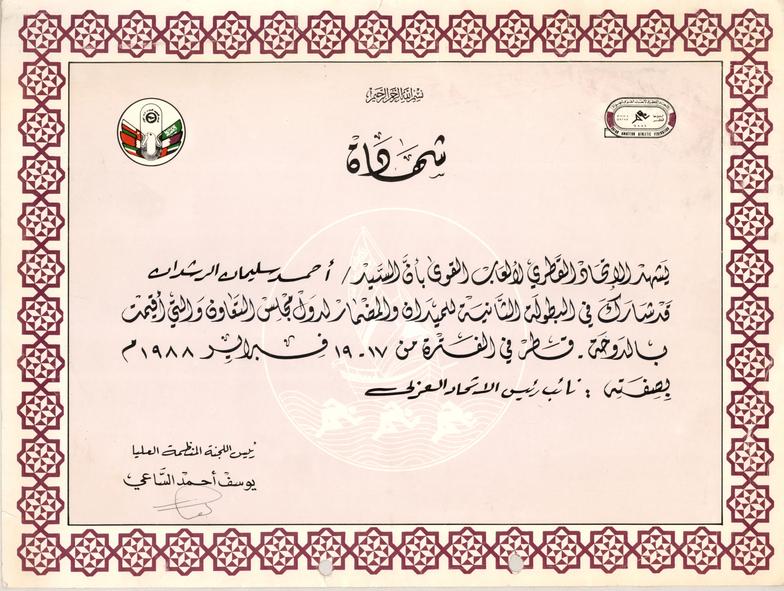 بسم الله الرحمن الرحيم
شهادة
يشهد الإتحاد القطري لألعاب القوى بأن السيد / أحمد سليمان الرشدان
قد شارك في البطولة الثانية للميدان والمضمار لدول مجلس التعاون والتي أقيمت
بالدوحة - قطر في الفترة من ١٧-١٩ فبراير ١٩٨٨م
بصفته : نائب رئيس الاتحاد العربي
رئيس اللجنة المنظمة العليا
يوسف أحمد الساعي